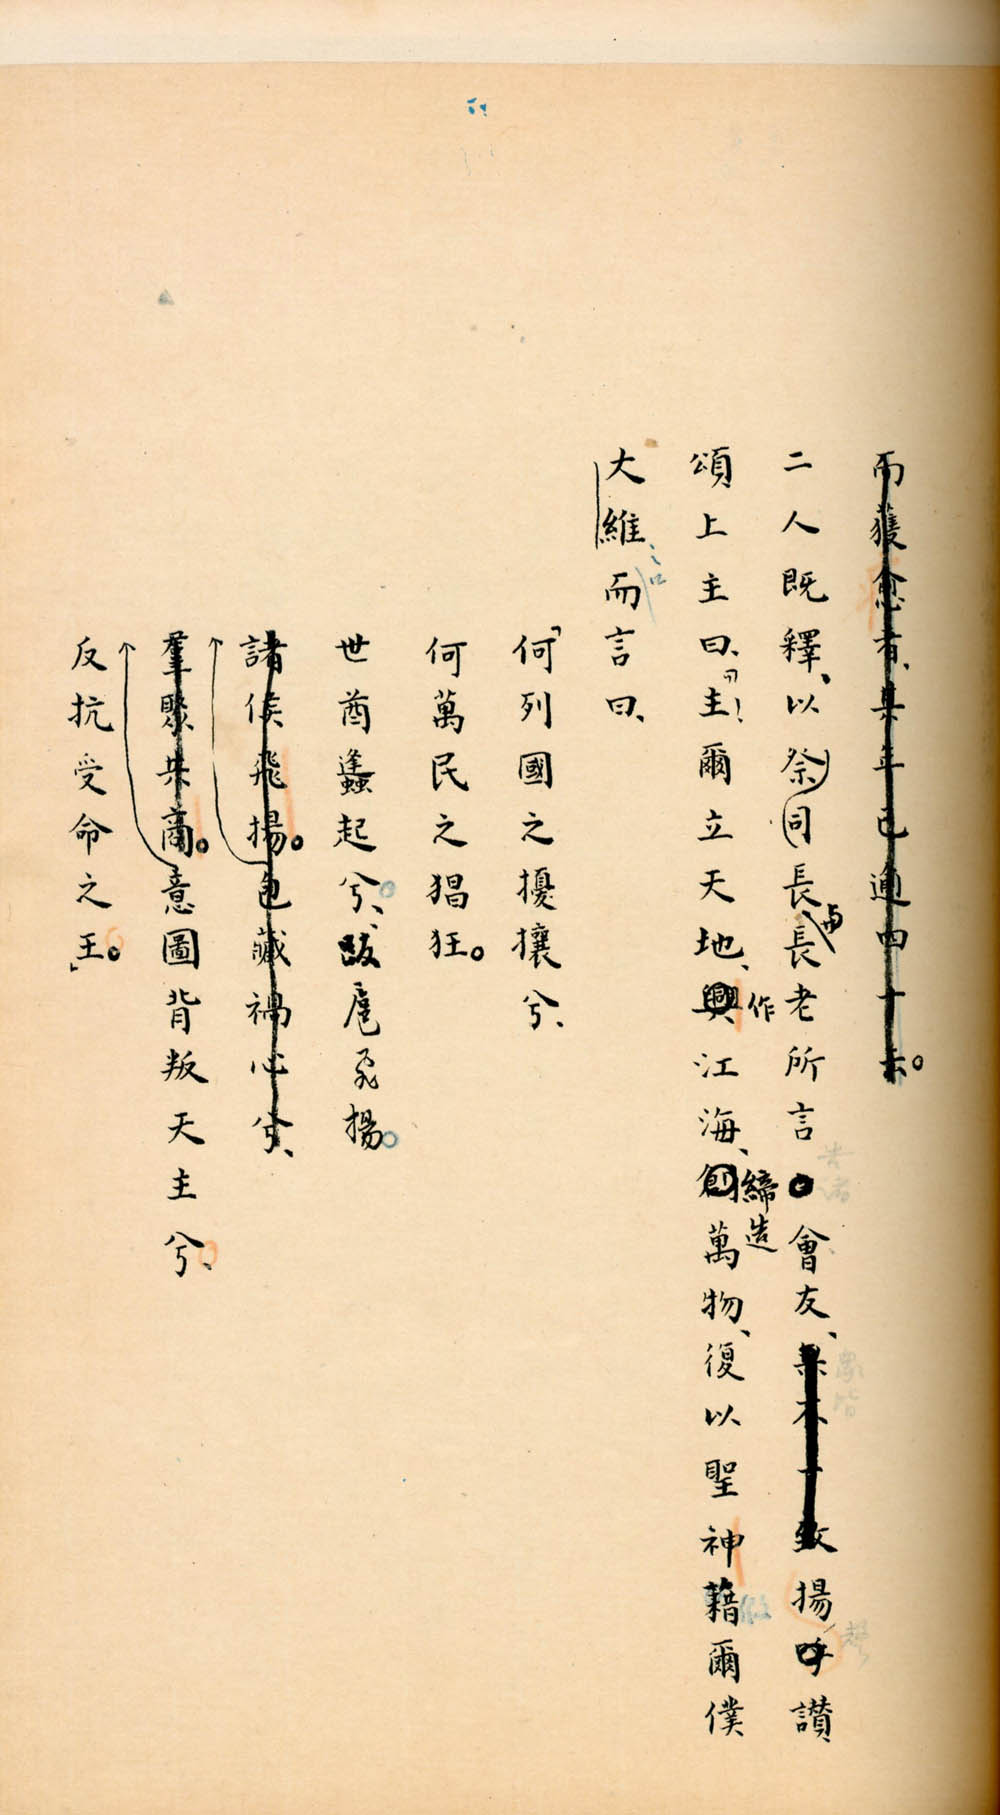 而獲愈者、其年已逾四十云。
二人既釋、以祭司長與長老所言會友、果不一致揚呼讚
告諸
眾皆
聲
頌上主曰、「主!爾立天地、興江海、創萬物、復以聖神藉爾僕
作
締造
大維之口而言曰、
「何列國之擾攘兮、
何萬民之猖狂。
世酋蠭起兮、跋扈飛揚。
諸侯飛揚。包藏禍心兮、
羣聚共商。意圖背叛天主兮、
反抗受命之王。」